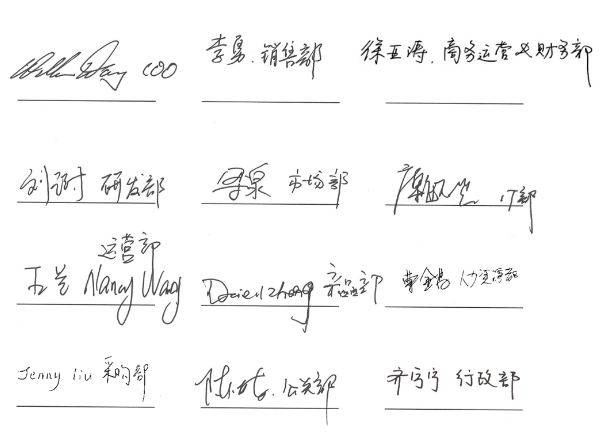 COO
李勇.销售部
徐亚涛.商务运营及财务部
研发部
市场部
IT部
运营部
王兰 Nancy Wang
Daniel Zhang 产品部
人力资源部
Jenny Liu 采购部
公关部
齐宁宁 行政部